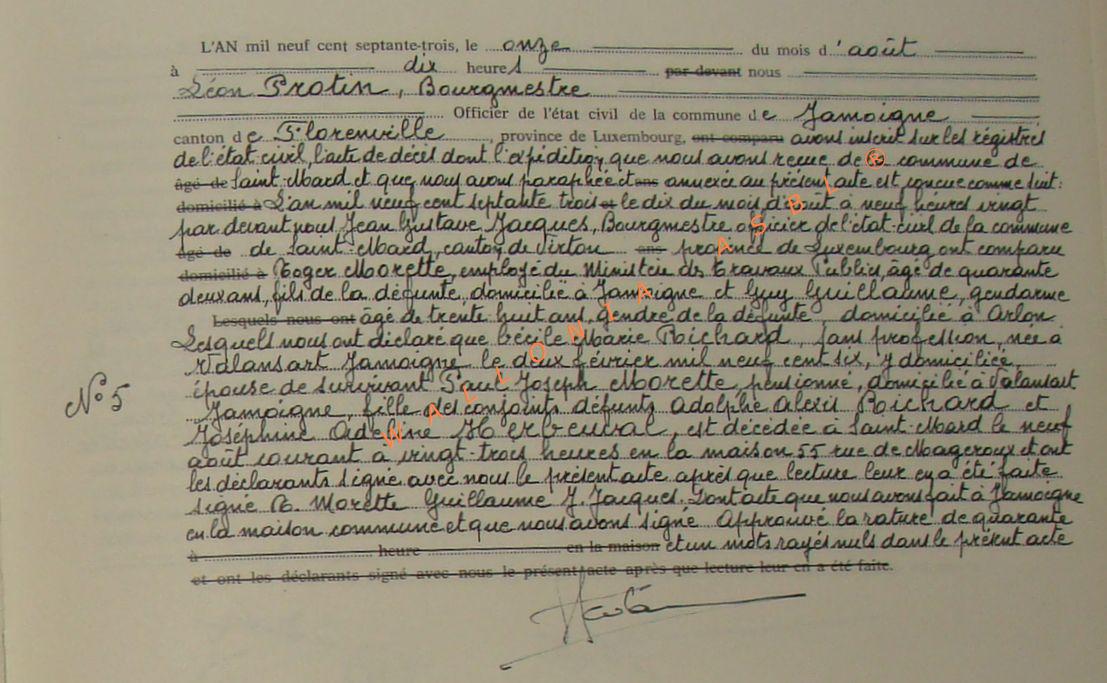 L'AN mil neuf cent septante-trois, le onze du mois d'août
à dix heures par devant nous
Léon Protin, Bourgmestre
Officier de l'état civil de la commune de Jamoigne
canton de Florenville, province de Luxembourg, ont comparu avons inscrit sur les régistres
de l'état-civil, l'acte de décès dont l'expédition, que nous avons reçue de la commune de
âgé de Saint-Mard et que nous avons paraphée et ans annexée au présent acte est conçue comme suit:
domicilié à L'an mil neuf cent septante trois et le dix du mois d'août à neuf heures vingt
par devant nous Jean Gustave Jacques, Bourgmestre officier de l'état-civil de la commune
âgé de de Saint-Mard, canton de Virton ans province de Luxembourg ont comparu
domicilié à Roger Morette, employé du Ministère des Travaux Publics, âgé de quarante
deux ans, fils de la défunte, domicilié à Jamoigne et Guy Guillaume, gendarme
Lesquels nous ont âgé de trente huit ans, gendre de la défunte, domicilié à Arlon
Lesquels nous ont déclaré que Cécile Marie Richard, sans profession, née à
Valansart Jamoigne le deux février mil neuf cent six, y domiciliée,
épouse de survivant Paul Joseph Morette, pensionné, domicilié à Valansart
N° 5
Jamoigne, fille des conjoints défunts Adolphe Alexis Richard et
Joséphine Adeline Herbeuval, est décédée à Saint-Mard le neuf
août courant à vingt-trois heures en la maison 55 rue de Mageroux et ont
les déclarants signé avec nous le présent acte après que lecture leur en a été faite
signé R. Morette Guillaume J. Jacques. Dont acte que nous avons fait à Jamoigne
en la maison commune et que nous avons signé Approuvé la rature de quarante
à heure en la maison et un mots rayés nuls dans le présent acte
et ont les déclarants signé avec nous le présent acte après que lecture leur en a été faite.
WALLONIA ASBL ®